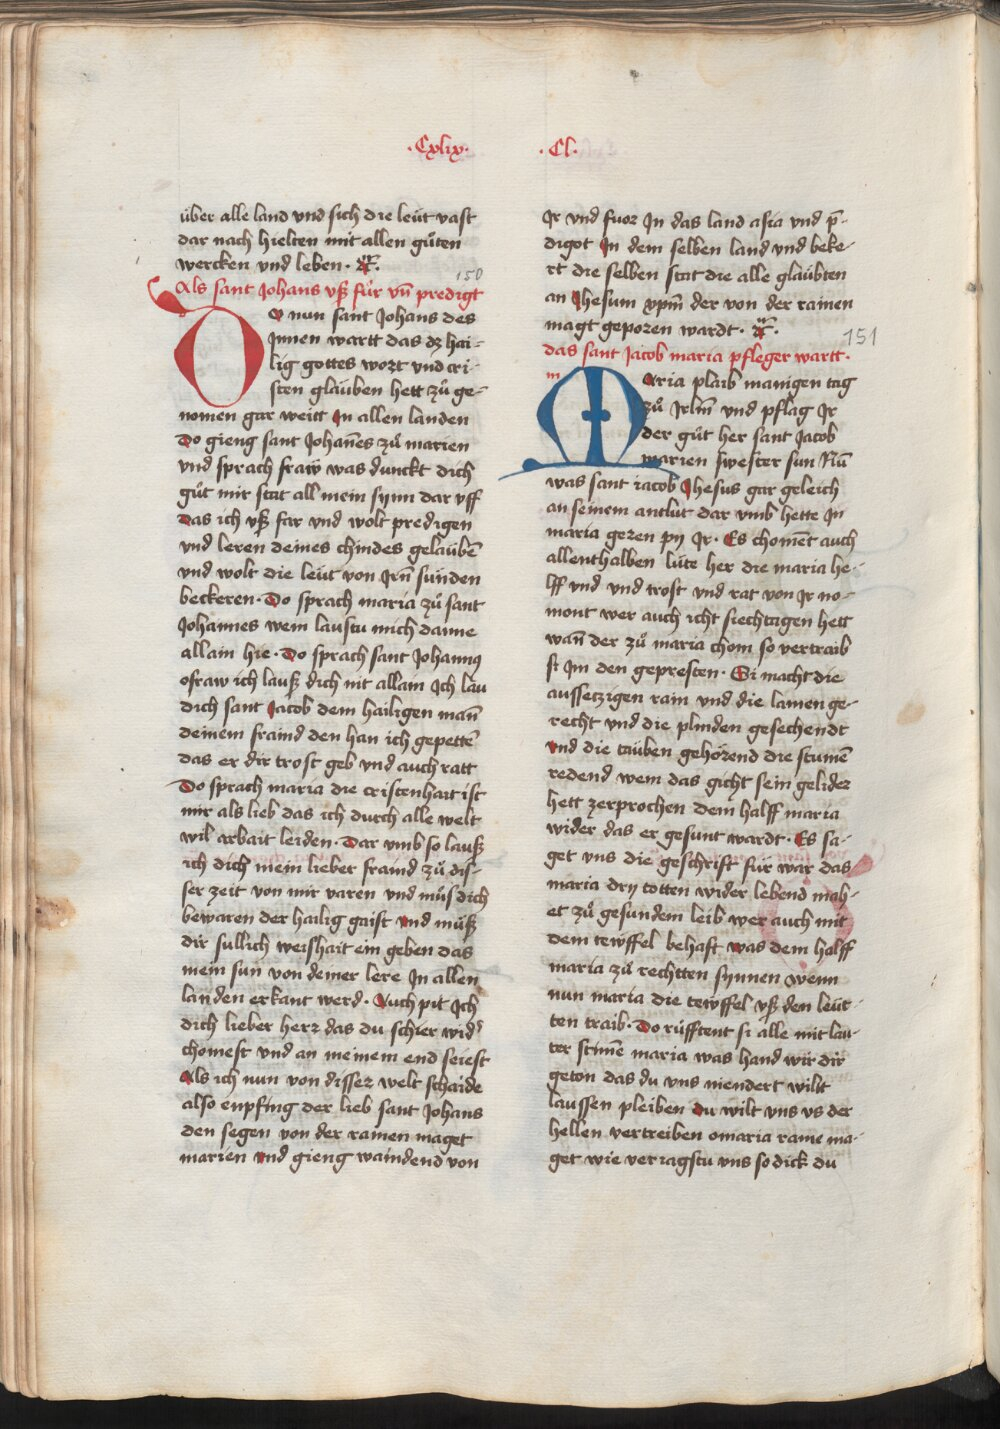 ·Cxlix·
über alle land vnd sich die leüt vast
dar nach hielten mit allen gůten
wercken vnd leben ·
150
Als sant Johans vſz fůr vn̄ predigt
DO nun sant Johans des
Jnnen wartt das dz hai-
lig gottes wort vnd cri-
sten glauben hett zů ge-
nomen gar weitt Jn allen landen
Do gieng sant Johan̄es zů marien
vnd sprach fraw was dunckt dich
gůt mir stat all mein synn dar vff
Das ich vſz far vnd wolt predigen
vnd leren deines chindes gelaubē
vnd wolt die leüt von Jrn̄ sünden
beckeren · Do sprach maria zů sant
Johannes wem laustu mich danne
allain hie · Do sprach sant Johannꝯ
ofraw ich lauſz dich nit allain Jch lau
dich sant Jacob dem hailigen man̄
deinem fraind den han ich gepettē
das er dir trost geb vnd auch ratt
Do sprach maria die cristenhait ist
mir als lieb das ich durch alle welt
wil arbait leiden · Dar vmb so lauſz
ich dich mein lieber fraind zů dis-
ser zeit von mir varen vnd můs dich
bewaren der hailig gaist vnd můſz
dir sullich weishait ein geben das
mein sun von deiner lere Jn allen
landen erkant werd · Auch pit Jch
dich lieber herz das du schier wid'
chomest vnd an meinem end seiest
Als ich nun von disser welt schaide
also enpfing der lieb sant Johans
den segen von der rainen maget
marien vnd gieng waindend von
·Cl·
Jr vnd fuor Jn das land asia vnd p̄-
digot Jn dem selben land vnd beke-
rt die selben stat die alle glaubten
an Jhesum xpm̄ der von der rainen
magt geporen wardt ·
151
das sant Jacob maria pfleger wartt ·
m
MAria plaib manigen tag
zů Jrlm̄ vnd pflag Jr
der gůt her sant Jacob
marien swester sun Nū
was sant iacob Jhesus gar geleich
an seinem antlut dar vmb hette Jn
maria gezen pij Jr · Es chomēt auch
allenthalben lüte her die maria he-
lff vnd vnd trost vnd rat von Jr no-
mont wer auch icht siechtagen hett
wan̄ der zů maria chom so vertraib
si Jm den gepresten · Si macht die
aussetzigen rain vnd die lamen ge-
recht vnd die plinden gesechendt
vnd die tauben gehörend die stumē
redend wem das gicht sein gelider
hett zerprochen dem halff maria
wider das er gesunt wardt · Es sa-
get vns die geschrift für war das
maria dry totten wider lebend mah-
et zů gesundem leib wer auch mit
dem tewffel behaft was dem halff
maria zů rechtten synnen wenn
nun maria die tewffel vſz den leüt-
ten traib · Do růfftent si alle mit lau-
ter stimē maria was hand wir dir
geton das du vns niendert wilt
laussen pleiben du wilt vns vs der
hellen vertreiben omaria raine ma-
get wie veriagstu vns so dick du